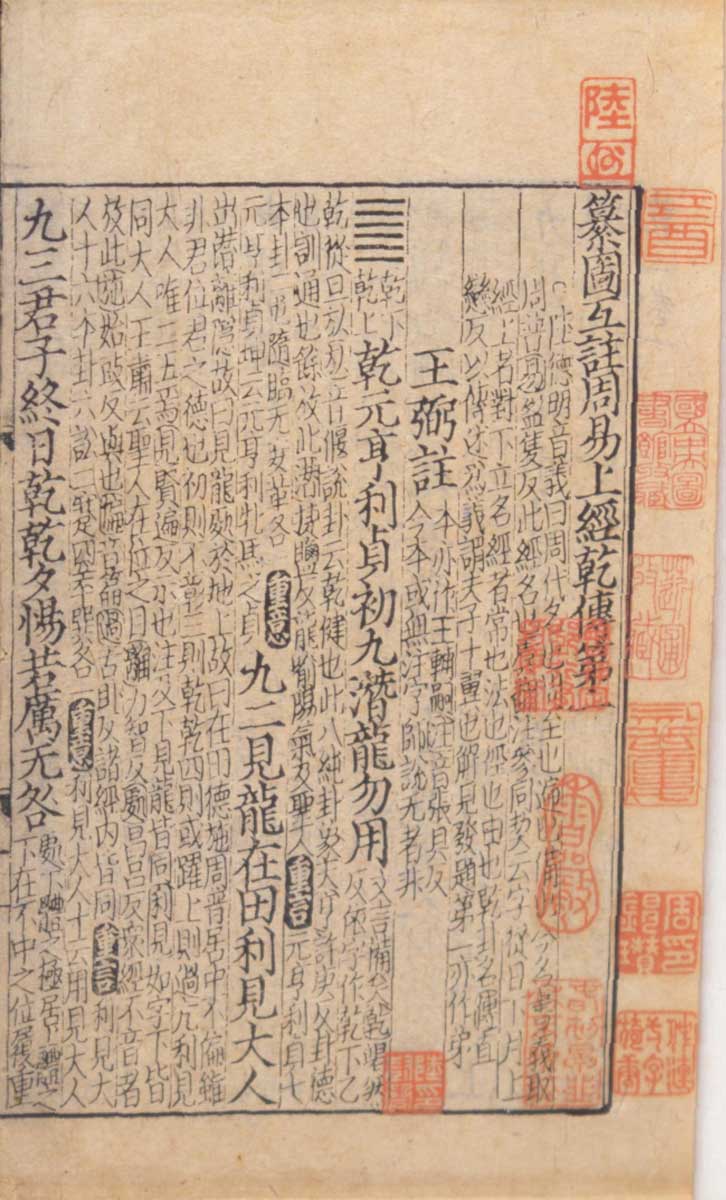 纂圖互註周易上經乾傳第一
陸德明音義曰周代名也周至也遍也備也今名書義取
周普易盈隻反此經名也虞翻注參同契云字從日下月上
經上者對下立名經者常也法也徑也由也乾卦名傳直
戀反以傳述為義謂夫子十翼也解見發題第一亦作弟
王弼註 本亦作王輔嗣注音張具反
今本或無注字師說无者非
䷀ 乾下乾上 乾元亨利貞初九潛龍勿用 文言備矣乾竭然
反依字作乾下乙
乾從旦㫃㫃音偃說卦云乾健也此八純卦象天亨許庚反卦德
也訓通也餘放此潛捷鹽反龍喻陽氣及聖人 重言 元亨利貞七
本卦一屯隨臨无妄革各一 重意
元亨利貞坤云元亨利牝馬之貞
九二見龍在田利見大人
出潛離隱故曰見龍處於地上故曰在田德施周普居中不偏雖
非君位君之德也初則不彰三則乾乾四則或躍上則過亢利見
大人唯二五焉見賢遍反示也注及下見龍皆同利見如字下皆
同大人王肅云聖人在位之目離力智反處昌呂反衆經不音者
放此施始豉反與也偏音篇過古臥反諸經內皆同 重言 利見大
人十六本卦六訟一蹇四萃巽各一 重意 利見大人十云用見大人
九三君子終日乾乾夕惕若厲无咎 處下體之極居上體之
下在不中之位履重